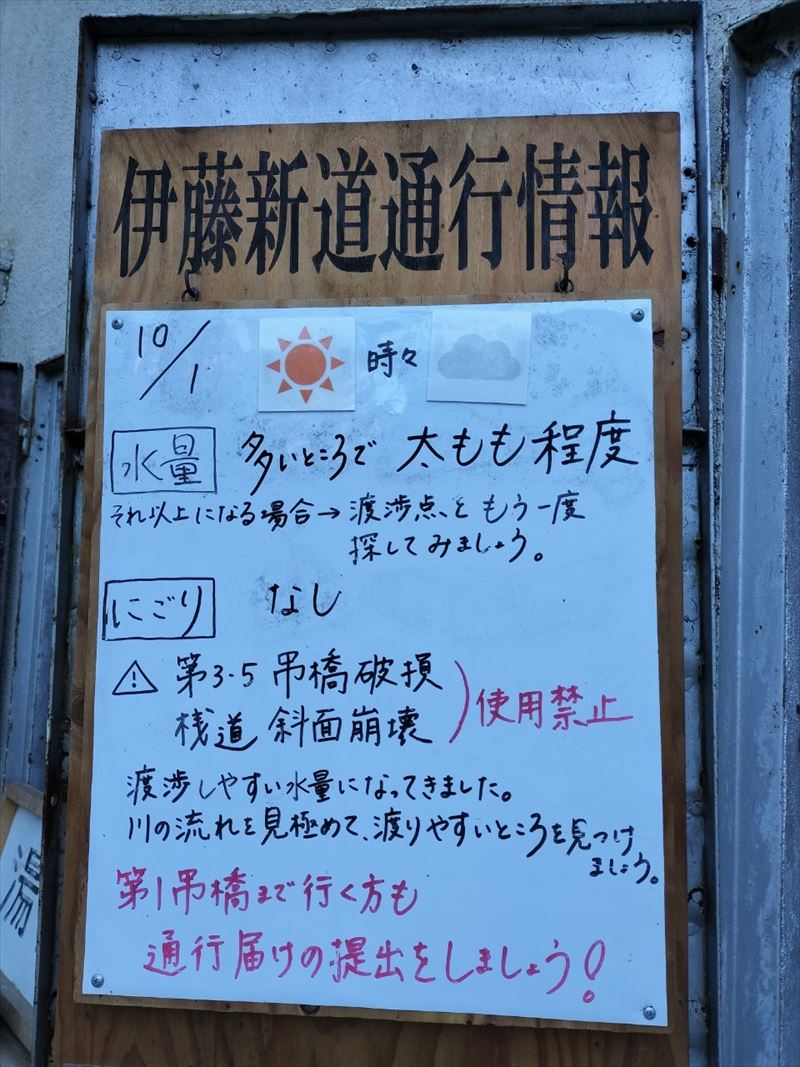 伊藤新道通行情報
10/1 時々
水量 多いところで 太もも程度
それ以上になる場合→渡渉点をもう一度
探してみましょう。
にごり なし
⚠ 第3・5 吊橋破損
桟道 斜面崩壊
使用禁止
渡渉しやすい水量になってきました。
川の流れを見極めて、渡りやすいところを見つけ
ましょう。
第1吊橋まで行く方も
通行届けの提出をしましょう!
湯